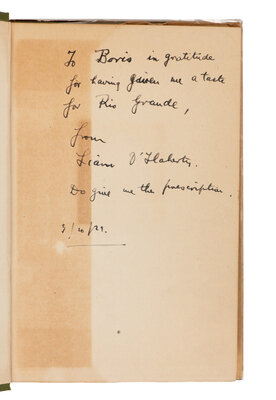 To Boris in gratitude
for having given me a taste
for Rio Grande,
from
Liam O'Flaherty.
Do give me the prescription.
3/10/29.